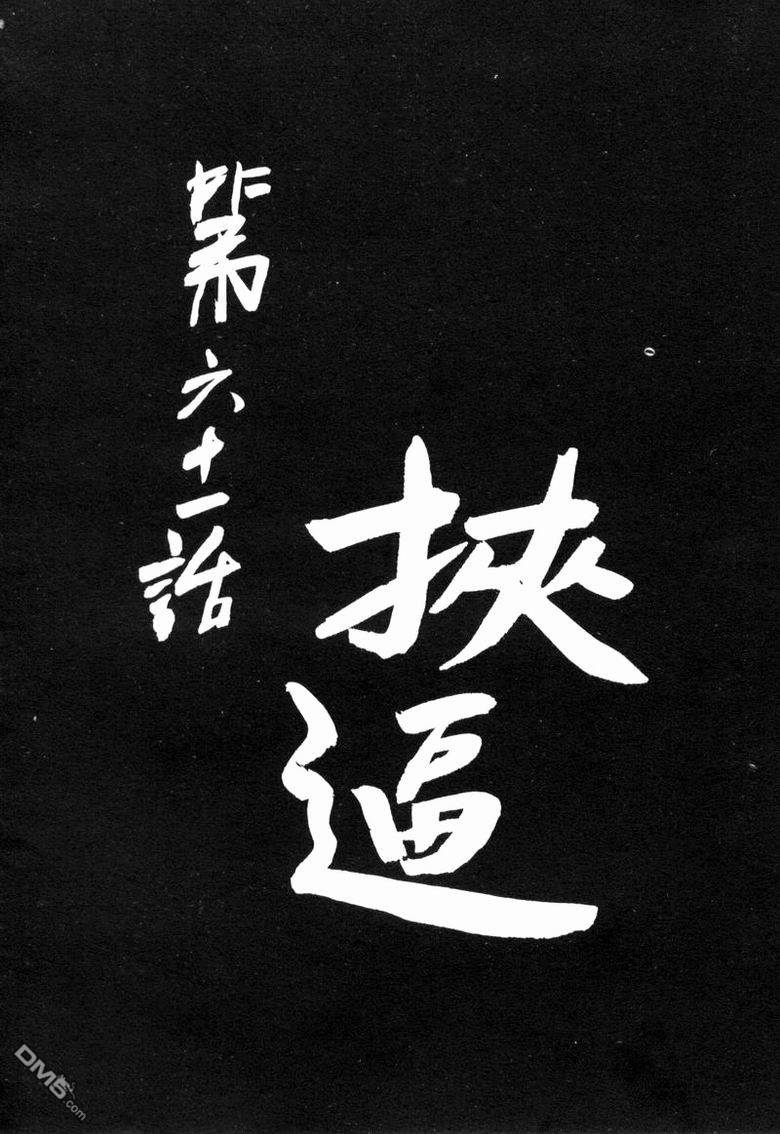 挾逼
第六十一話
DM5.com